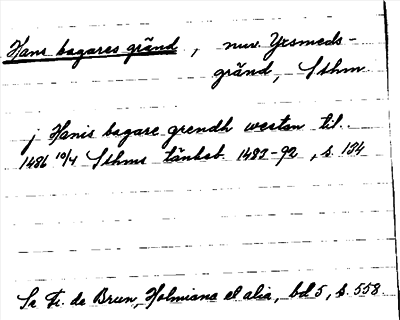 Hans bagares gränd, nuv. Yxsmeds-
gränd, Sthm
j Hanis bagare grendh westan til.
1486 10/4 Sthms tänkeb. 1483-92, s. 134
Se Fr. de Brun, Holmiana et alia, bd 5, s. 558.